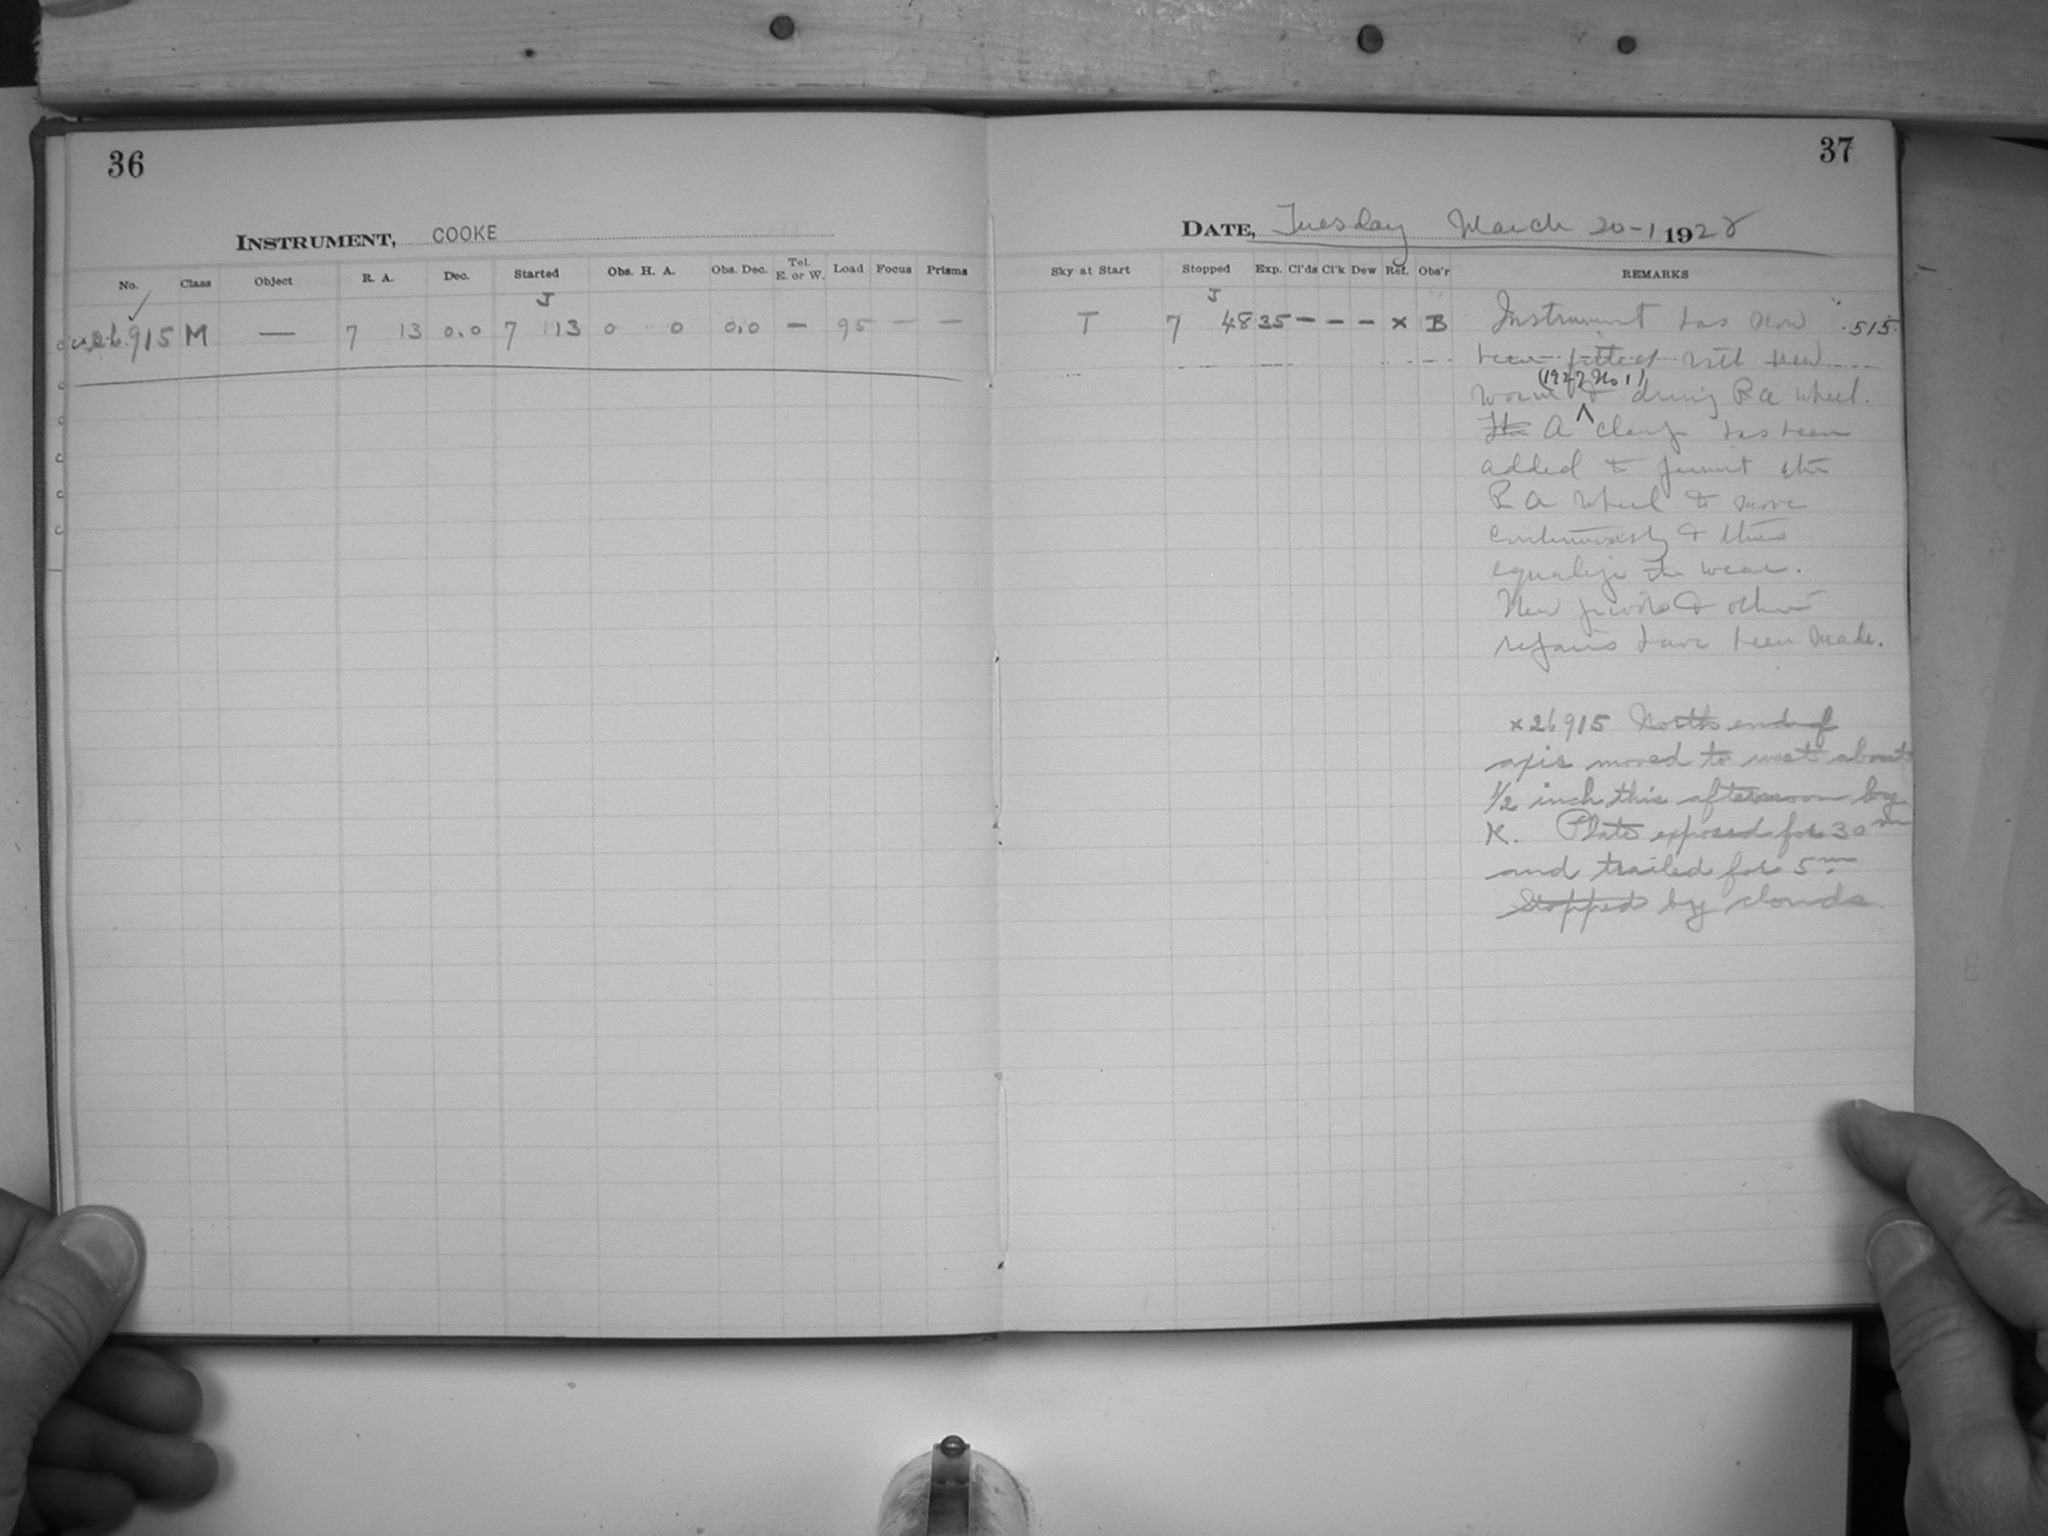 36
INSTRUMENT, COOKE
No. Class Object R. A. Dec. Started Obs. H. A. Obs. Dec. Tel. E. or W. Load Focus Prisms
J
26915 M — 7 13 0.0 7 13 0 0 0.0 — 95 — —
37
DATE, Tuesday March 20-1 1928
Sky at Start Stopped Exp. Cl'ds Cl'k Dew Ref. Obs'r REMARKS
J
T 7 48 35 — — — x B
Instrument has now .515
been fitted with new
(1927 No 1)
worm & driving R A wheel.
The A ^ clamp has been
added to permit the
R A wheel to move
continuously & thus
equalize the wear.
New pivots & other
repairs have been made.
x 26915 North end of
axis moved to west about
1/2 inch this afternoon by
K. Plate exposed for 30m
and trailed for 5m.
Stopped by clouds.